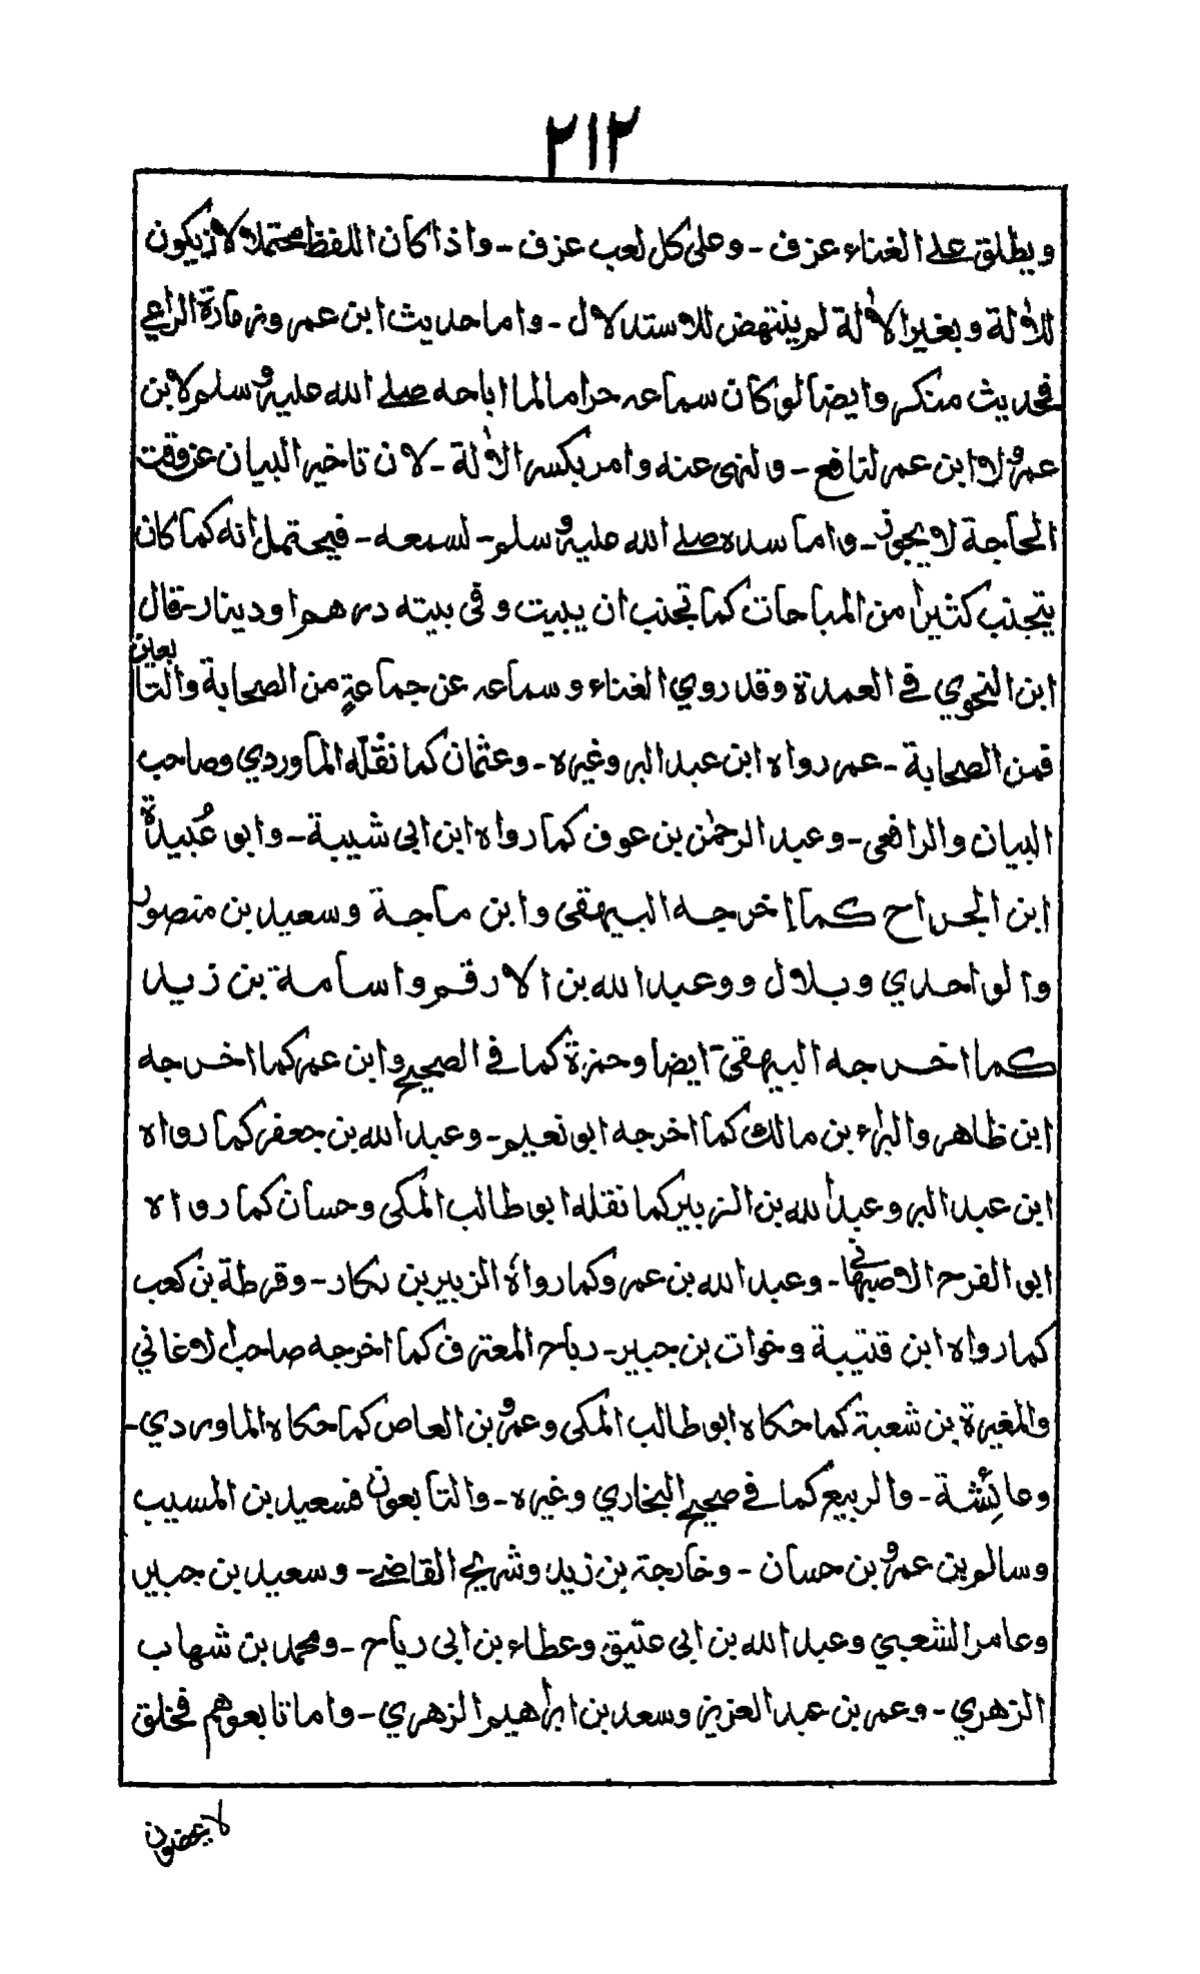 ٢١٢
ويطلق على الغناء عزف - وعلى كل لعب عزف - واذا كان اللفظ محتملا لان يكون
للآلة وبغير الآلة لم ينتهض للاستدلال - واما حديث ابن عمر وزمارة الراعي
فحديث منكر وايضا لو كان سماعه حراما لما اباحه صلى الله عليه وسلم لابن
عمر ولا ابن عمر لنافع - ولنهى عنه وامر بكسر الآلة - لان تاخير البيان عن وقت
الحاجة لا يجوز - واما سده صلى الله عليه وسلم - لسمعه - فيحتمل انه كما كان
يتجنب كثيرا من المباحات كما تجنب ان يبيت وفى بيته درهم او دينار - قال
ابن النحوي في العمدة وقد روي الغناء وسماعه عن جماعةٍ من الصحابة والتابعين
فمن الصحابة - عمر رواه ابن عبد البر وغيره - وعثمان كما نقله الماوردي وصاحب
البيان والرافعى - وعبد الرحمٰن بن عوف كما رواه ابن ابى شيبة - وابو عُبيدة
ابن الجراح كما إخرجه البيهقى وابن ماجة وسعيد بن منصور
والواحدي وبلال ووعبد الله بن الارقم واسامة بن زيد
كما اخرجه البيهقى ايضا وحمزة كما في الصحيح وابن عمر كما اخرجه
ابن ظاهر والبراء بن مالك كما اخرجه ابو نعيم - وعبد الله بن جعفر كما رواه
ابن عبد البر وعبد الله بن الزبير كما نقله ابو طالب المكى وحسان كما رواه
ابو الفرح الاصبهانى - وعبد الله بن عمر وكما رواه الزبير بن بكار - وقرطة بن كعب
كما رواه ابن قتيبة وخوات بن جبير - رباح المعترف كما اخرجه صاحب الاغاني
والمغيرة بن شعبة كما حكاه ابو طالب المكى وعمرو بن العاص كما حكاه الماوردي -
وعائِشة - والربيع كما في صحيح البخاري وغيره - والتابعون فسعيد بن المسيب
وسالم بن عمرو بن حسان - وخارجة بن زيد وشريح القاضى - وسعيد بن جبير
وعامر الشعبي وعبد الله بن ابى عتيق وعطاء بن ابى رياح - ومحمد بن شهاب
الزهري - وعمر بن عبد العزيز وسعد بن ابراهيم الزهري - واما تابعوهم فخلق
لا يحصون